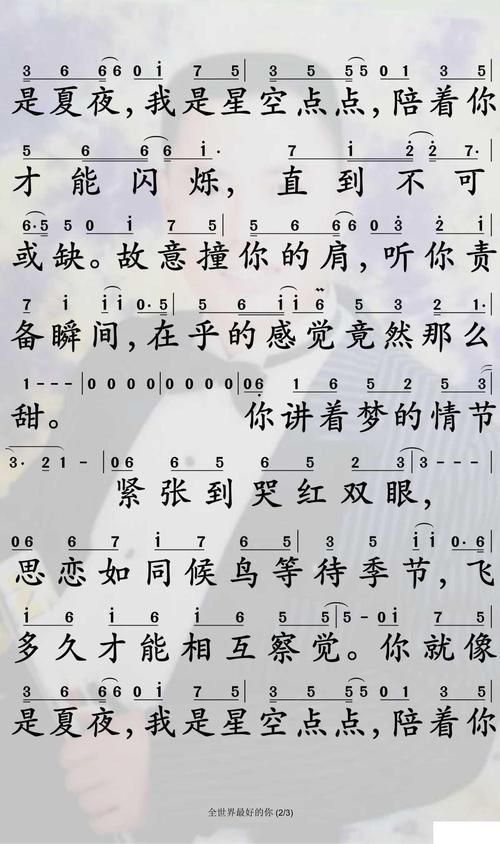 3 6 6 6 0 i 7 5 | 3 5 5 5 0 1 3 5 |
是夏夜,我是星空点点,陪着你
5 6 6 6 i· 7 i 2 2 7·
才能闪烁,直到不可
6·5 5 0 i 7 5 | 5 6 6 6 0 3 2 2 |
或缺。故意撞你的肩,听你责
7 i i i 0·5 | 5 6 i i 6 5 3 2 1·
备瞬间,在乎的感觉竟然那么
1 - - - | 0 0 0 0 | 0 0 0 0 | 0 6 1 6 5 2 5 3
甜。你讲着梦的情节
3· 2 1 - | 0 6 6 6 5 6 5 2 3 | 3 - - - |
紧张到哭红双眼,
0 6 6 7 i 7 6 6 3 5 i i | 0·6
思恋如同候鸟等待季节,飞
i 6 i i 6 5 5 5 | 5 - 0 i i 7
多久才能相互察觉。你就像
3 6 6 6 0 i 7 5 | 3 5 5 5 0 1 3 5 |
是夏夜,我是星空点点,陪着你
全世界最好的你 (2/3)